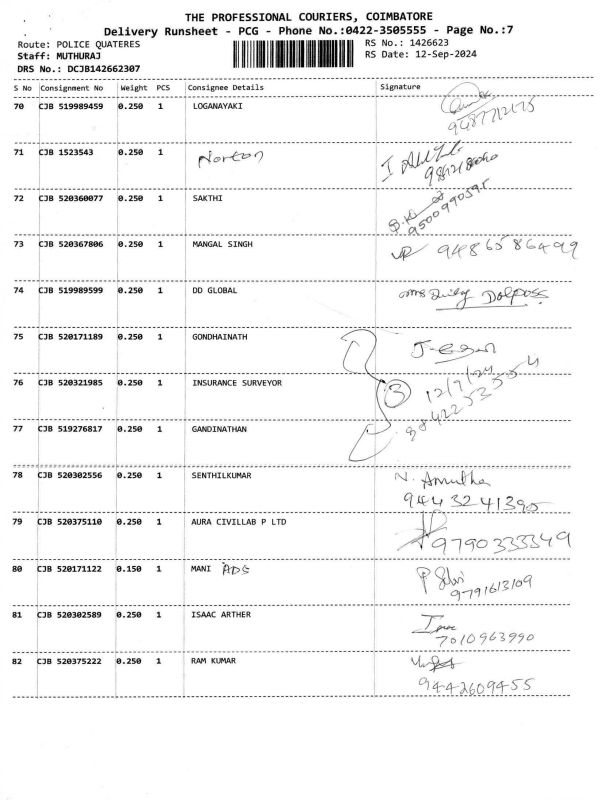 THE PROFESSIONAL COURIERS, COIMBATORE
Delivery Runsheet - PCG - Phone No.:0422-3505555 - Page No.:7
Route: POLICE QUATERES RS No.: 1426623
Staff: MUTHURAJ RS Date: 12-Sep-2024
DRS No.: DCJB142662307
S No Consignment No Weight PCS Consignee Details Signature
70 CJB 519989459 0.250 1 LOGANAYAKI
71 CJB 1523543 0.250 1 Norton
72 CJB 520360077 0.250 1 SAKTHI
9500990595
73 CJB 520367806 0.250 1 MANGAL SINGH 9486586499
74 CJB 519989599 0.250 1 DD GLOBAL
75 CJB 520171189 0.250 1 GONDHAINATH
76 CJB 520321985 0.250 1 INSURANCE SURVEYOR 3 12/9/24
77 CJB 519276817 0.250 1 GANDINATHAN
78 CJB 520302556 0.250 1 SENTHILKUMAR N. Amutha
9443241395
79 CJB 520375110 0.250 1 AURA CIVILLAB P LTD
9790333349
80 CJB 520171122 0.150 1 MANI ADS P Selvi
9791613109
81 CJB 520302589 0.250 1 ISAAC ARTHER
7010963990
82 CJB 520375222 0.250 1 RAM KUMAR
9442609455